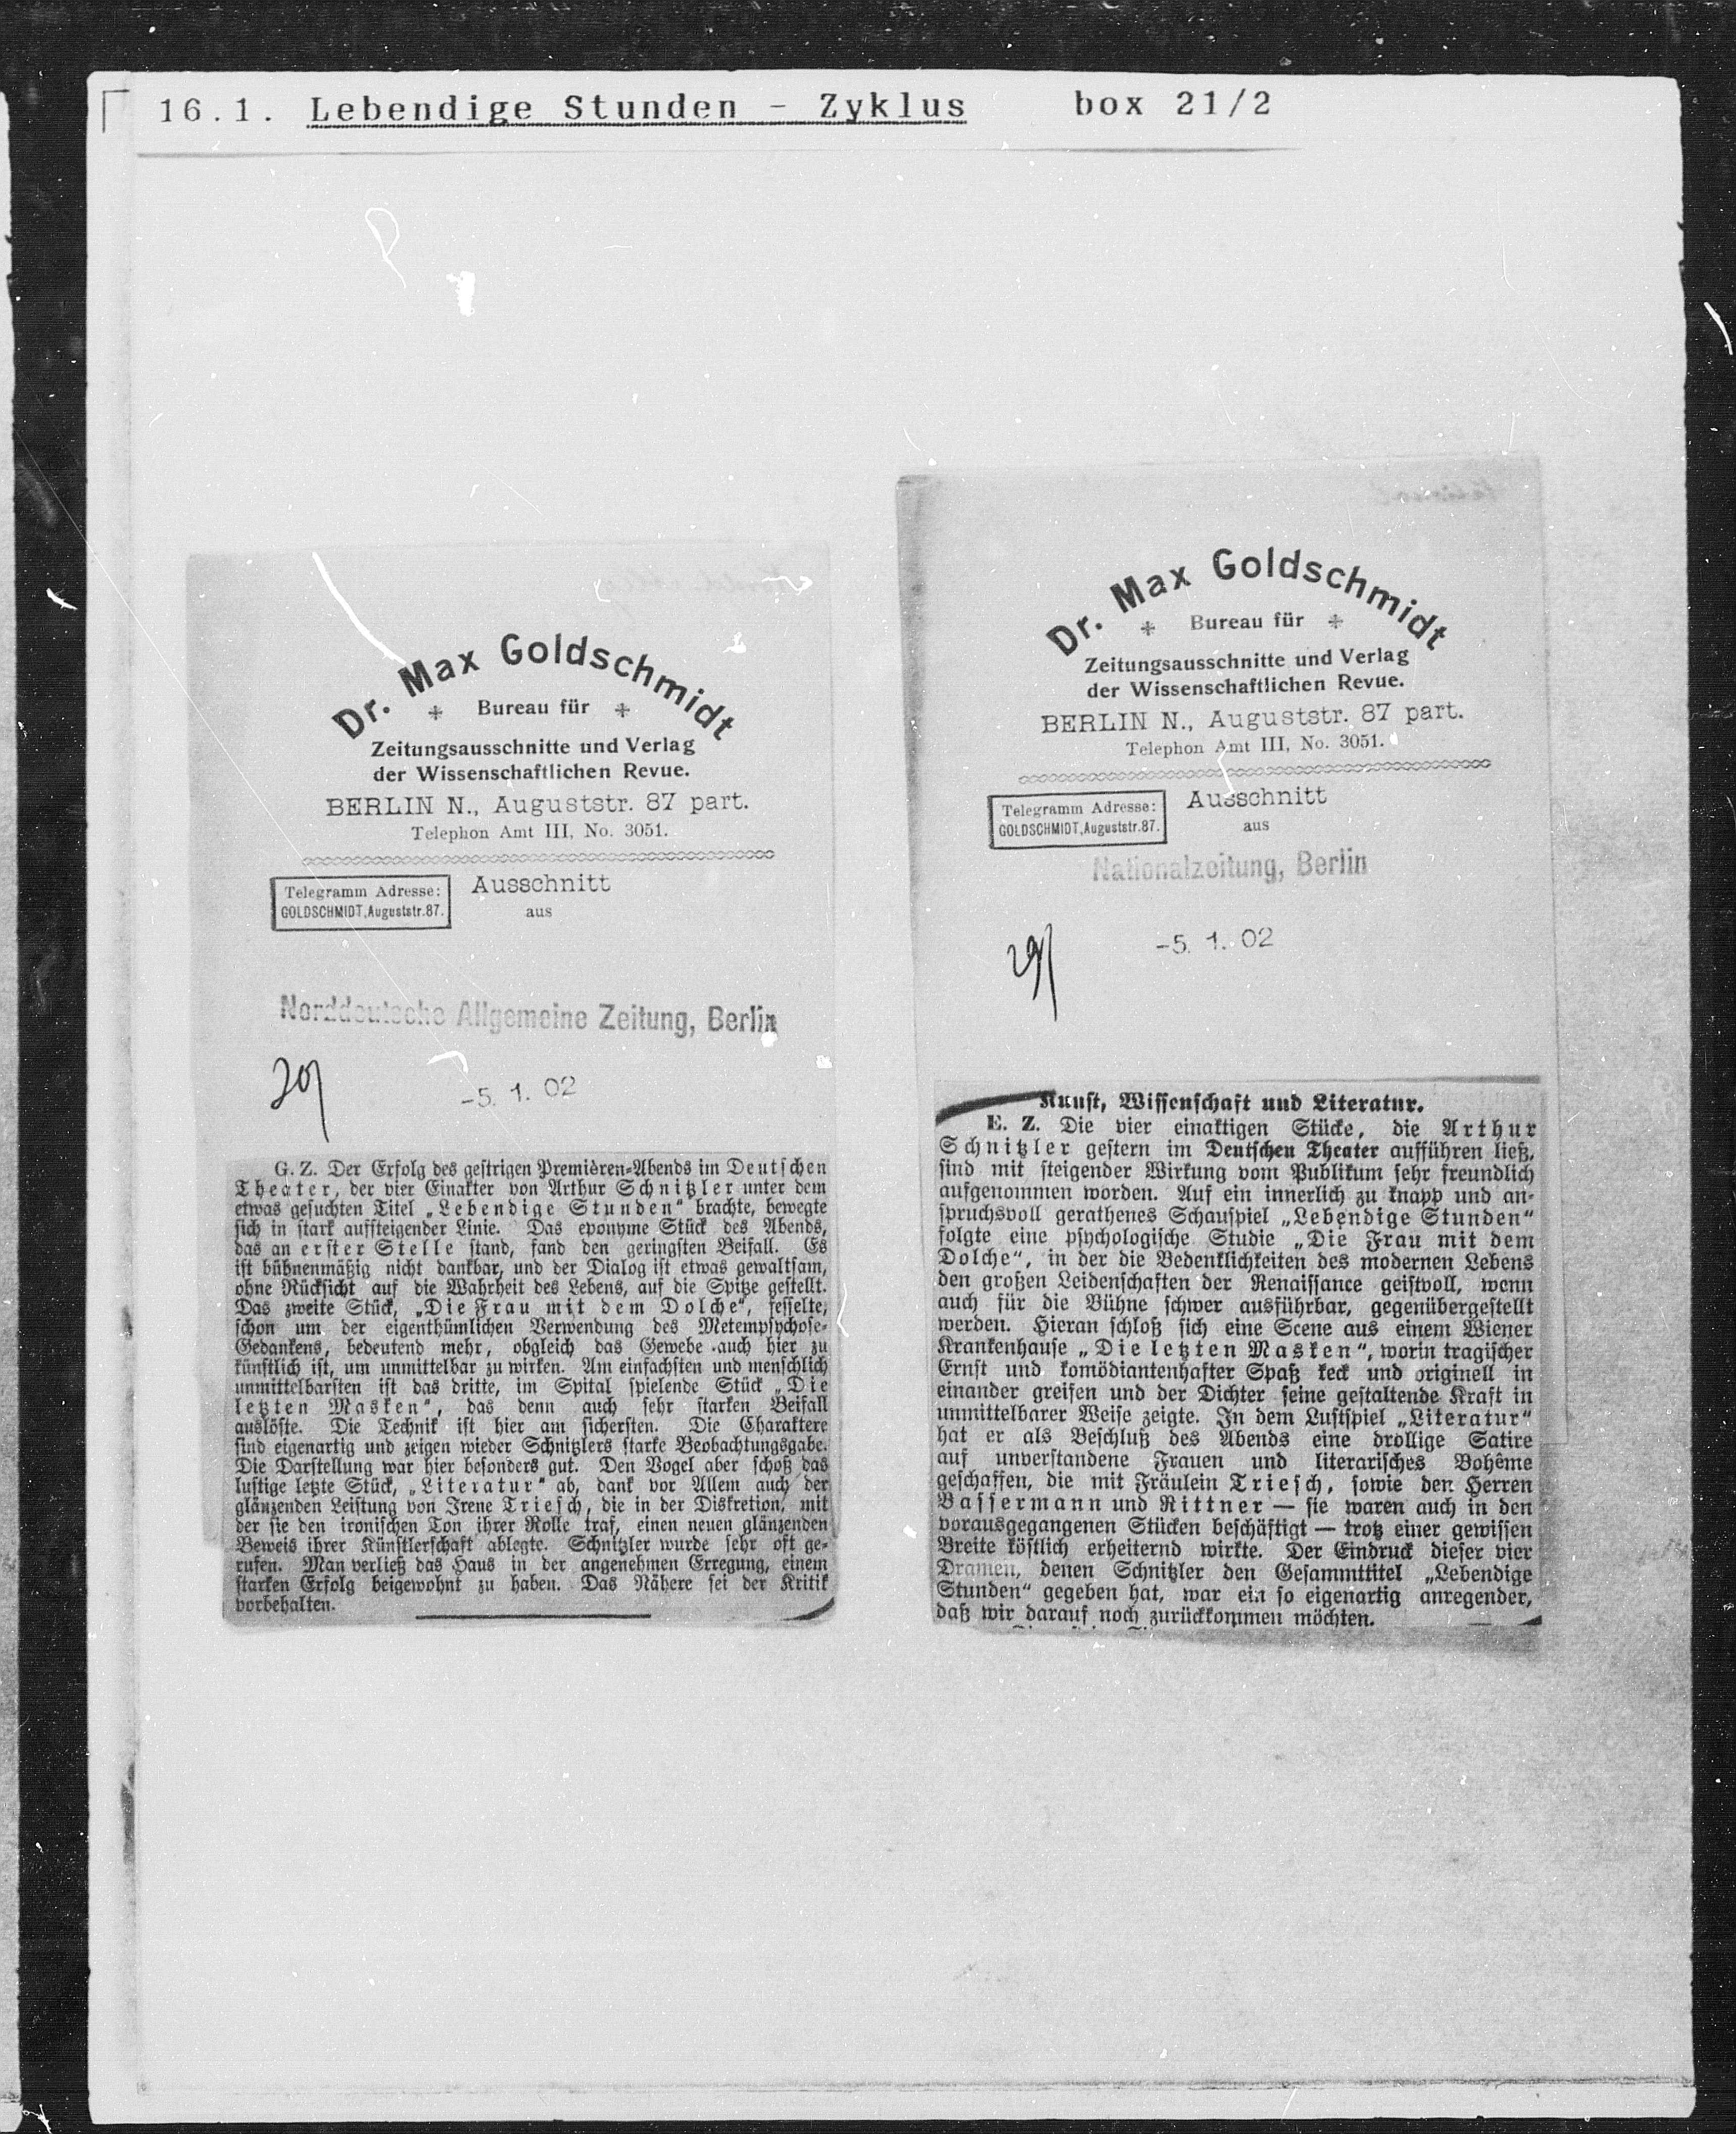 16.1. Lebendige Stunden - Zyklus box 21/2
Dr. Max Goldschmidt
Bureau für
Zeitungsausschnitte und Verlag
der Wissenschaftlichen Revue.
BERLIN N., Auguststr. 87 part.
Telephon Amt III, No. 3051.
Telegramm Adresse:
GOLDSCHMIDT, Auguststr. 87.
Ausschnitt
aus
Norddeutsche Allgemeine Zeitung, Berlin
-5. 1. 02
G. Z. Der Erfolg des gestrigen Premièren-Abends im Deutschen
Theater, der vier Einakter von Arthur Schnitzler unter dem
etwas gesuchten Titel „Lebendige Stunden" brachte, bewegte
sich in stark aufsteigender Linie. Das eponyme Stück des Abends,
das an erster Stelle stand, fand den geringsten Beifall. Es
ist bühnenmäßig nicht dankbar, und der Dialog ist etwas gewaltsam,
ohne Rücksicht auf die Wahrheit des Lebens, auf die Spitze gestellt.
Das zweite Stück, „Die Frau mit dem Dolche", fesselte,
schon um der eigenthümlichen Verwendung des Metempsychose-
Gedankens, bedeutend mehr, obgleich das Gewebe auch hier zu
künstlich ist, um unmittelbar zu wirken. Am einfachsten und menschlich
unmittelbarsten ist das dritte, im Spital spielende Stück „Die
letzten Masken", das denn auch sehr starken Beifall
auslöste. Die Technik ist hier am sichersten. Die Charaktere
sind eigenartig und zeigen wieder Schnitzlers starke Beobachtungsgabe.
Die Darstellung war hier besonders gut. Den Vogel aber schoß das
lustige letzte Stück, „Literatur" ab, dank vor Allem auch der
glänzenden Leistung von Irene Triesch, die in der Diskretion, mit
der sie den ironischen Ton ihrer Rolle traf, einen neuen glänzenden
Beweis ihrer Künstlerschaft ablegte. Schnitzler wurde sehr oft ge-
rufen. Man verließ das Haus in der angenehmen Erregung, einem
starken Erfolg beigewohnt zu haben. Das Nähere sei der Kritik
vorbehalten.
Dr. Max Goldschmidt
Bureau für
Zeitungsausschnitte und Verlag
der Wissenschaftlichen Revue.
BERLIN N., Auguststr. 87 part.
Telephon Amt III, No. 3051.
Telegramm Adresse:
GOLDSCHMIDT, Auguststr. 87.
Ausschnitt
aus
Nationalzeitung, Berlin
-5. 1. 02
Kunst, Wissenschaft und Literatur.
E. Z. Die vier einaktigen Stücke, die Arthur
Schnitzler gestern im Deutschen Theater aufführen ließ,
sind mit steigender Wirkung vom Publikum sehr freundlich
aufgenommen worden. Auf ein innerlich zu knapp und an-
spruchsvoll gerathenes Schauspiel „Lebendige Stunden"
folgte eine psychologische Studie „Die Frau mit dem
Dolche", in der die Bedenklichkeiten des modernen Lebens
den großen Leidenschaften der Renaissance geistvoll, wenn
auch für die Bühne schwer ausführbar, gegenübergestellt
werden. Hieran schloß sich eine Scene aus einem Wiener
Krankenhause „Die letzten Masken", worin tragischer
Ernst und komödiantenhafter Spaß keck und originell in
einander greifen und der Dichter seine gestaltende Kraft in
unmittelbarer Weise zeigte. In dem Lustspiel „Literatur"
hat er als Beschluß des Abends eine drollige Satire
auf unverstandene Frauen und literarisches Bohême
geschaffen, die mit Fräulein Triesch, sowie den Herren
Bassermann und Rittner — sie waren auch in den
vorausgegangenen Stücken beschäftigt — trotz einer gewissen
Breite köstlich erheiternd wirkte. Der Eindruck dieser vier
Dramen, denen Schnitzler den Gesammttitel „Lebendige
Stunden" gegeben hat, war ein so eigenartig anregender,
daß wir darauf noch zurückkommen möchten.